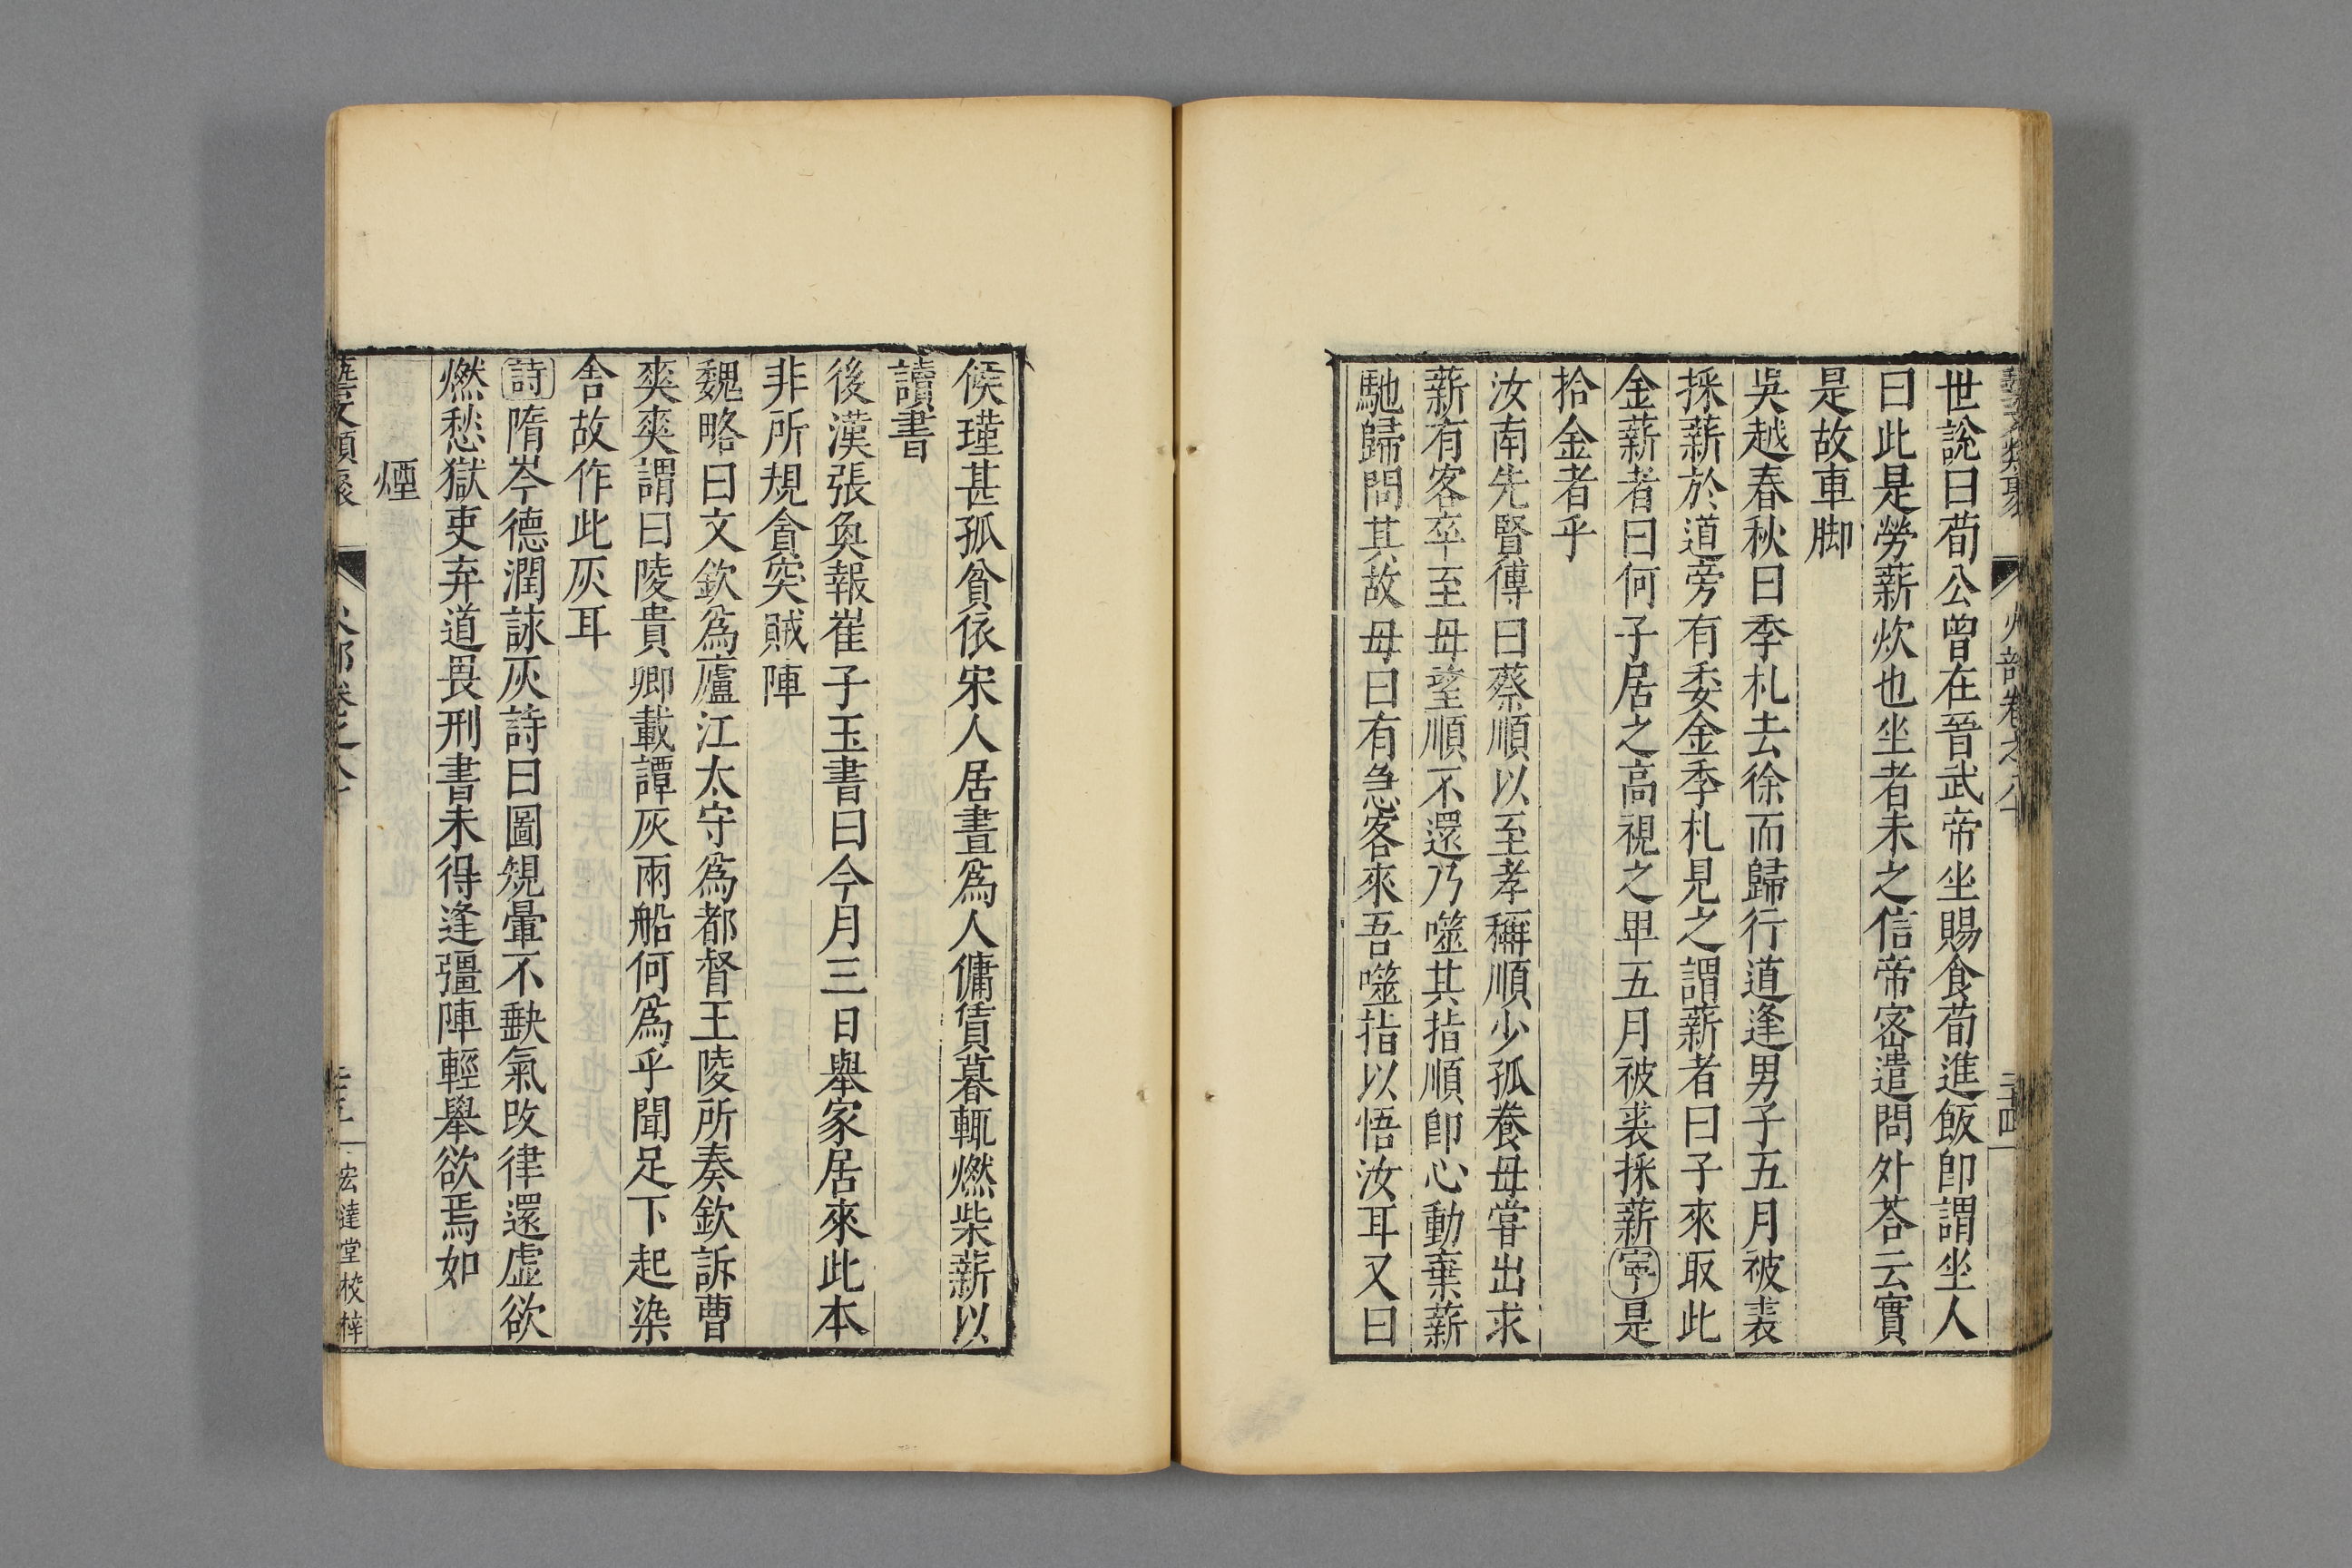 藝文類聚 火部卷之八十 三十四
世說曰荀公曾在晉武帝坐賜食荀進飯卽謂坐人
曰此是勞薪炊也坐者未之信帝密遣問外荅云實
是故車脚
吳越春秋曰季札去徐而歸行道逢男子五月被裘
採薪於道旁有委金季札見之謂薪者曰子來取此
金薪者曰何子居之高視之卑五月被裘採薪寧是
拾金者乎
汝南先賢傳曰蔡順以至孝稱順少孤養母嘗出求
薪有客卒至母望順不還乃噬其指順卽心動棄薪
馳歸問其故母曰有急客來吾噬指以悟汝耳又曰
侯瑾甚孤貧依宋人居晝爲人傭賃暮輒燃柴薪以
讀書
後漢張奐報崔子玉書曰今月三日舉家居來此本
非所規貪突賊陣
魏略曰文欽爲廬江太守爲都督王陵所奏欽訴曹
爽爽謂曰陵貴卿載譚灰兩船何爲乎聞足下起染
舍故作此灰耳
詩隋岑德潤詠灰詩曰圖規暈不缺氣改律還虛欲
燃愁獄吏弃道畏刑書未得逢彊陣輕舉欲焉如
煙
藝文類聚 火部卷之八十 宏達堂校梓